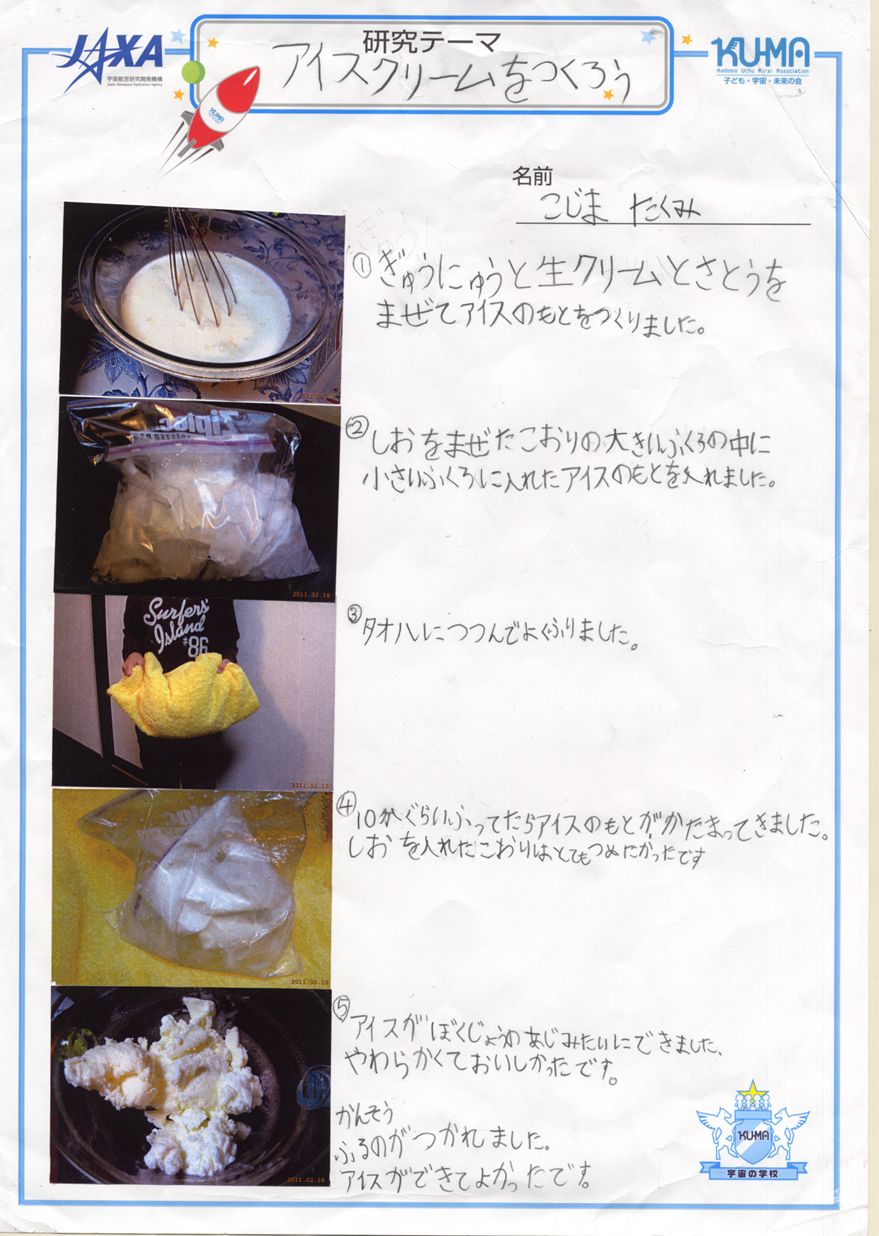 JAXA
宇宙航空研究開発機構
Japan Aerospace Exploration Agency
研究テーマ
アイスクリームをつくろう
KU-MA
Kodomo Uchu Mirai Association
子ども・宇宙・未来の会
KU-MA
名前
こじま たくみ
①ぎゅうにゅうと生クリームとさとうを
まぜてアイスのもとをつくりました。
Ziploc
②しおをまぜたこおりの大きいふくろの中に
小さいふくろに入れたアイスのもとを入れました。
2011.02.16
Surfers'
Island
#86
③タオルにつつんでよくふりました。
2011.02.16
④10分ぐらいふってたらアイスのもとがかたまってきました。
しおを入れたこおりはとてもつめたかったです
2011.02.16
⑤アイスがぼくじょうのあじみたいにできました、
やわらかくておいしかったです。
かんそう
ふるのがつかれました。
アイスができてよかったです。
2011.02.16
KU-MA
宇宙の学校